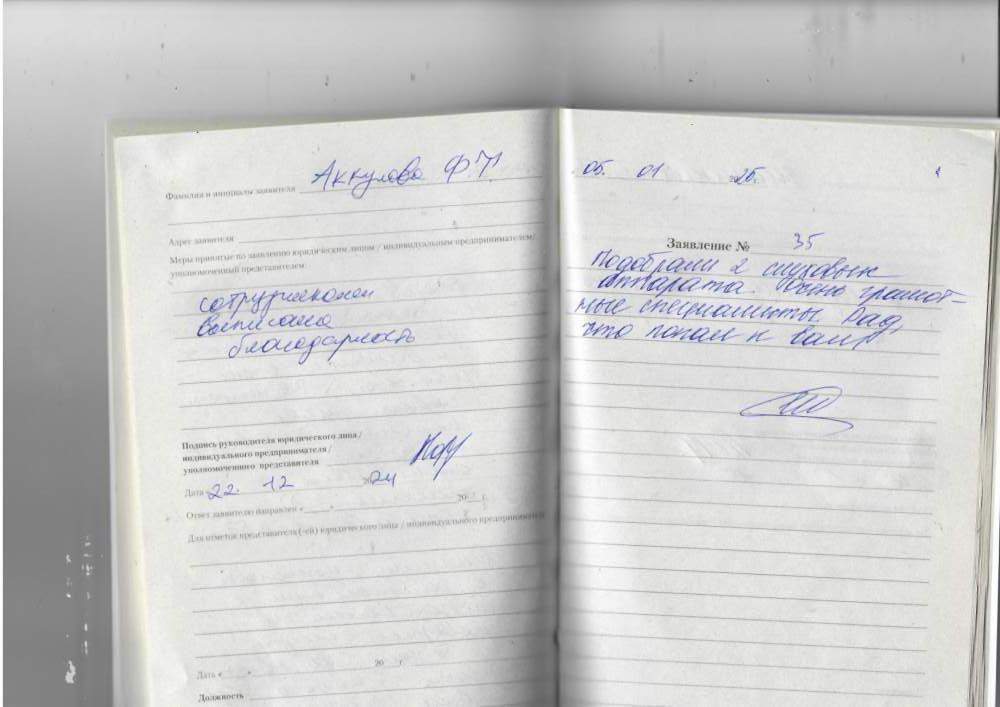 Фамилия и инициалы заявителя Аккулова Ф.Т.
Адрес заявителя
Меры принятые по заявлению юридическим лицом / индивидуальным предпринимателем/
уполномоченный представителем
сотрудниками
выписана
благодарность
Подпись руководителя юридического лица /
индивидуального предпринимателя /
уполномоченного представителя
Дата 22. 12 2024
Ответ заявителю направлен « » 20 г.
Для отметок представителя (-ей) юридического лица / индивидуального предпринимателя
Дата « » 20 г
Должность
05. 01 2025.
Заявление № 35
Подобрали 2 слуховых
аппарата. Очень грамот-
ные специалисты. Рад,
что попал к вам